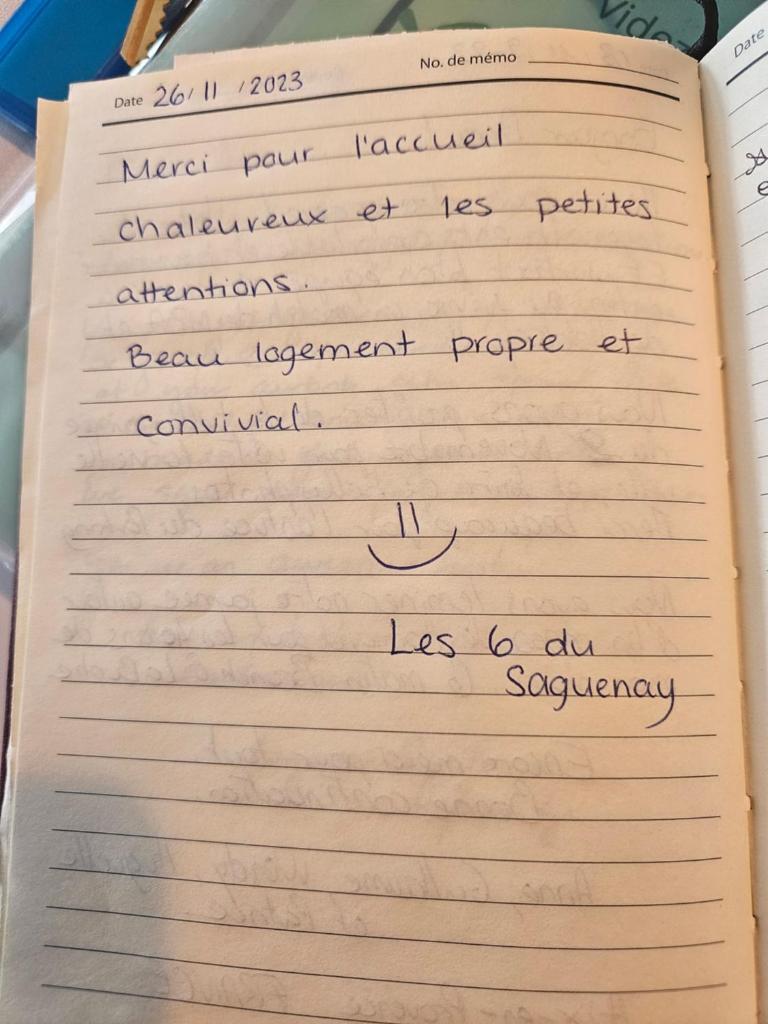 Videz
Date 26/11/2023 No. de mémo
Merci pour l'accueil
chaleureux et les petites
attentions.
Beau logement propre et
convivial.
Les 6 du
Saguenay
Date